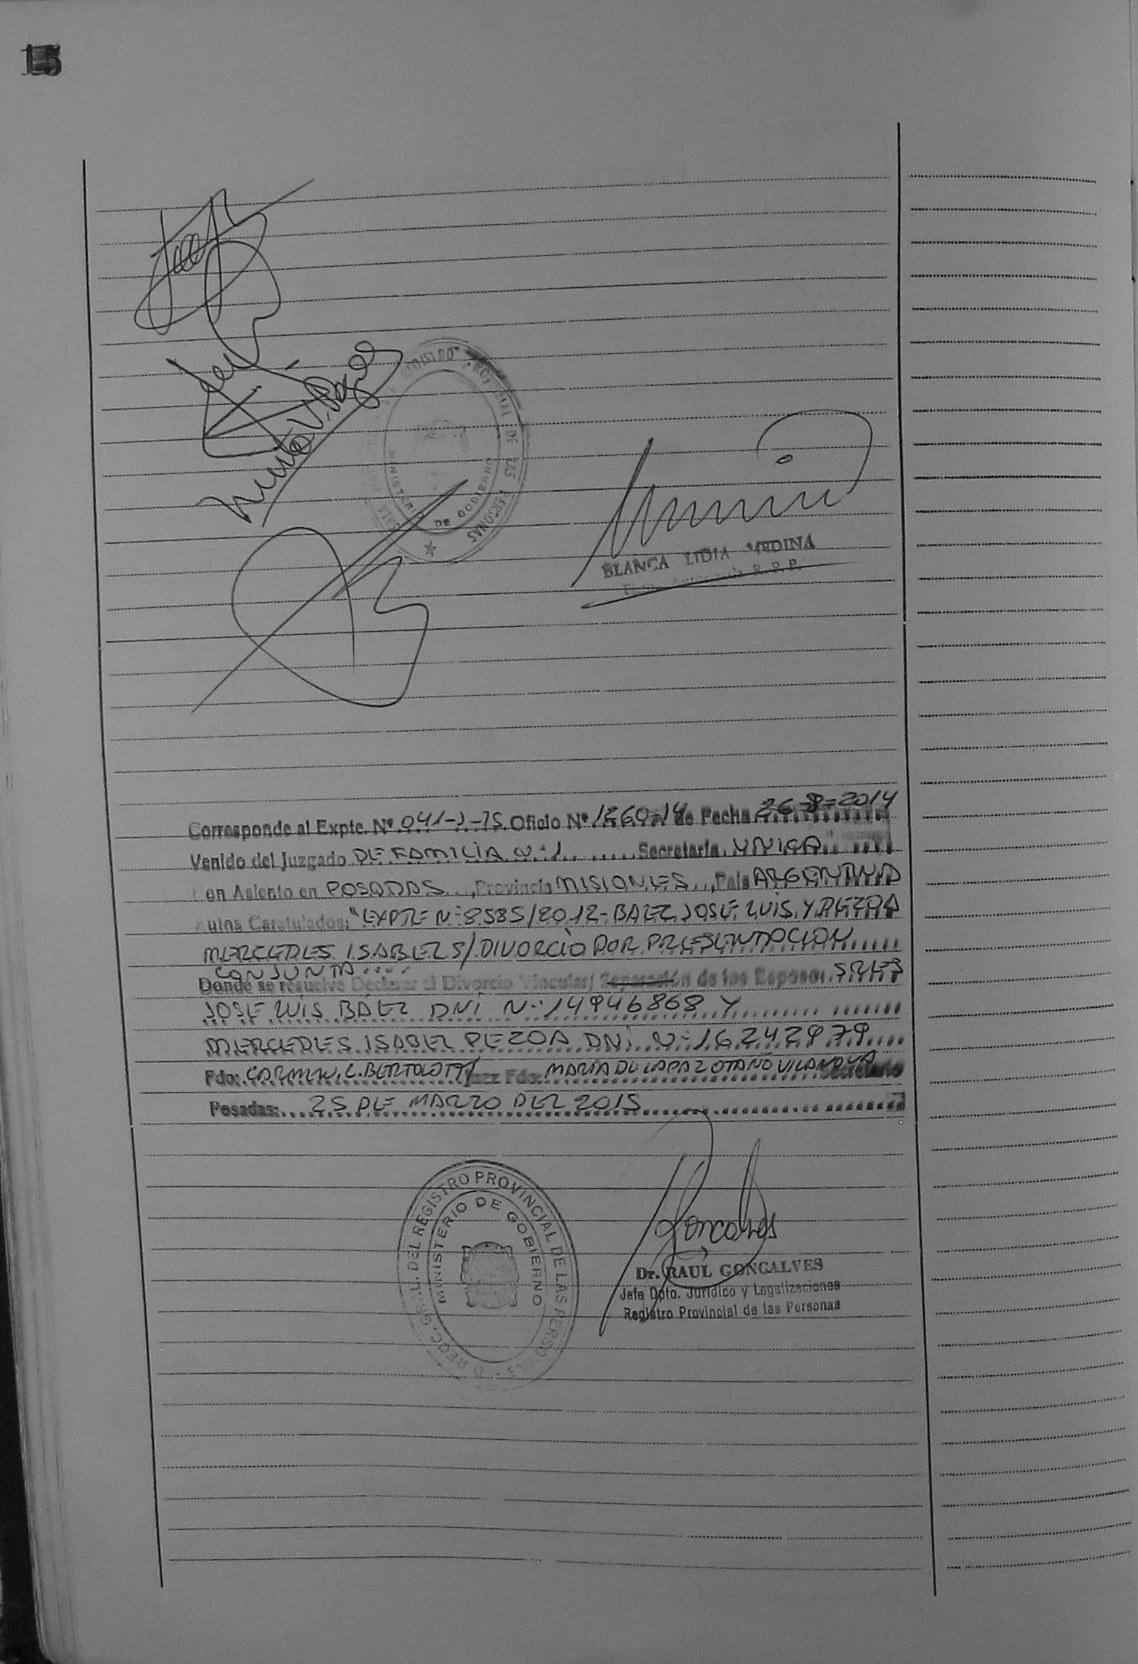 15
REGISTRO PROVINCIAL DE LAS PERSONAS
MINISTERIO DE GOBIERNO
BLANCA LIDIA MEDINA
R.P.P.
Corresponde al Expte. Nº 041-J-15 Oficio Nº 1260-14 de Fecha 26-8-2014
Venido del Juzgado DE FAMILIA Nº 1 Secretaría UNICA
Con Asiento en POSADAS, Provincia MISIONES, País ARGENTINA
Autos Caratulados: "EXPTE Nº 8585/2012- BAEZ JOSE LUIS Y PEZOA
MERCEDES ISABEL S/ DIVORCIO POR PRESENTACION
CONJUNTA
Donde se resuelve Declarar el Divorcio Vincular/ Separación de los Esposos SRES
JOSE LUIS BÁEZ DNI Nº 14946868 Y
MERCEDES ISABEL PEZOA DNI Nº 16242979
Fdo: CARMEN C. BERTOLOTTI Juez Fdo: MARIA DE LA PAZ OTAÑO VILANOVA Secretario
Posadas: 25 DE MARZO DEL 2015
DIRECC. GRAL. DEL REGISTRO PROVINCIAL DE LAS PERSONAS
MINISTERIO DE GOBIERNO
Goncalves
Dr. RAUL GONCALVES
Jefe Dpto. Jurídico y Legalizaciones
Registro Provincial de las Personas